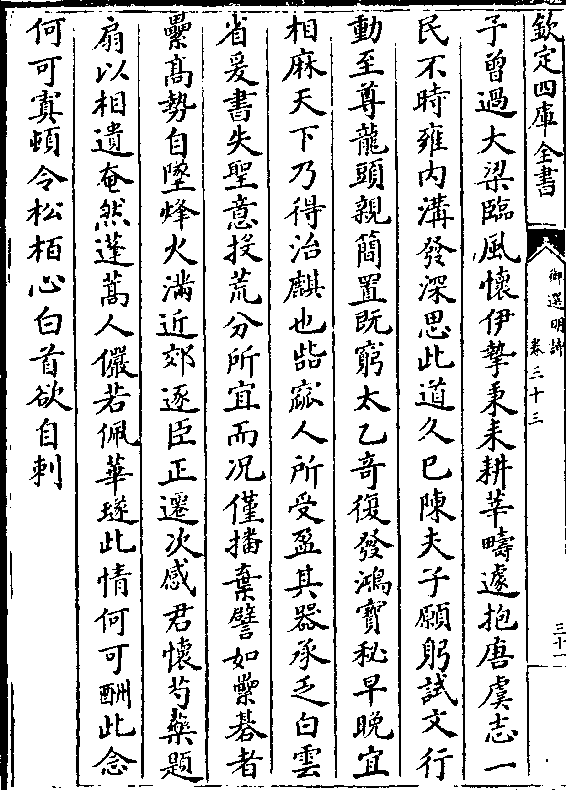 欽定四庫全書
御選明詩
卷三十三
三十一
子曾過大梁臨風懷伊摯秉耒耕莘疇遽抱唐虞志一
民不時雍内溝發深思此道久已陳夫子願躬試文行
動至尊龍頭親簡置既窮太乙竒復發鴻寳秘早晚宜
相麻天下乃得治麒也呰窳人所受盈其器承乏白雲
省爰書失聖意投荒分所宜而况僅播棄譬如纍碁者
纍髙勢自墜烽火滿近郊逐臣正遷次感君懷芍藥題
扇以相遺奄然蓬蒿人儼若佩華璲此情何可酬此念
何可寘頓令松栢心白首欲自刺